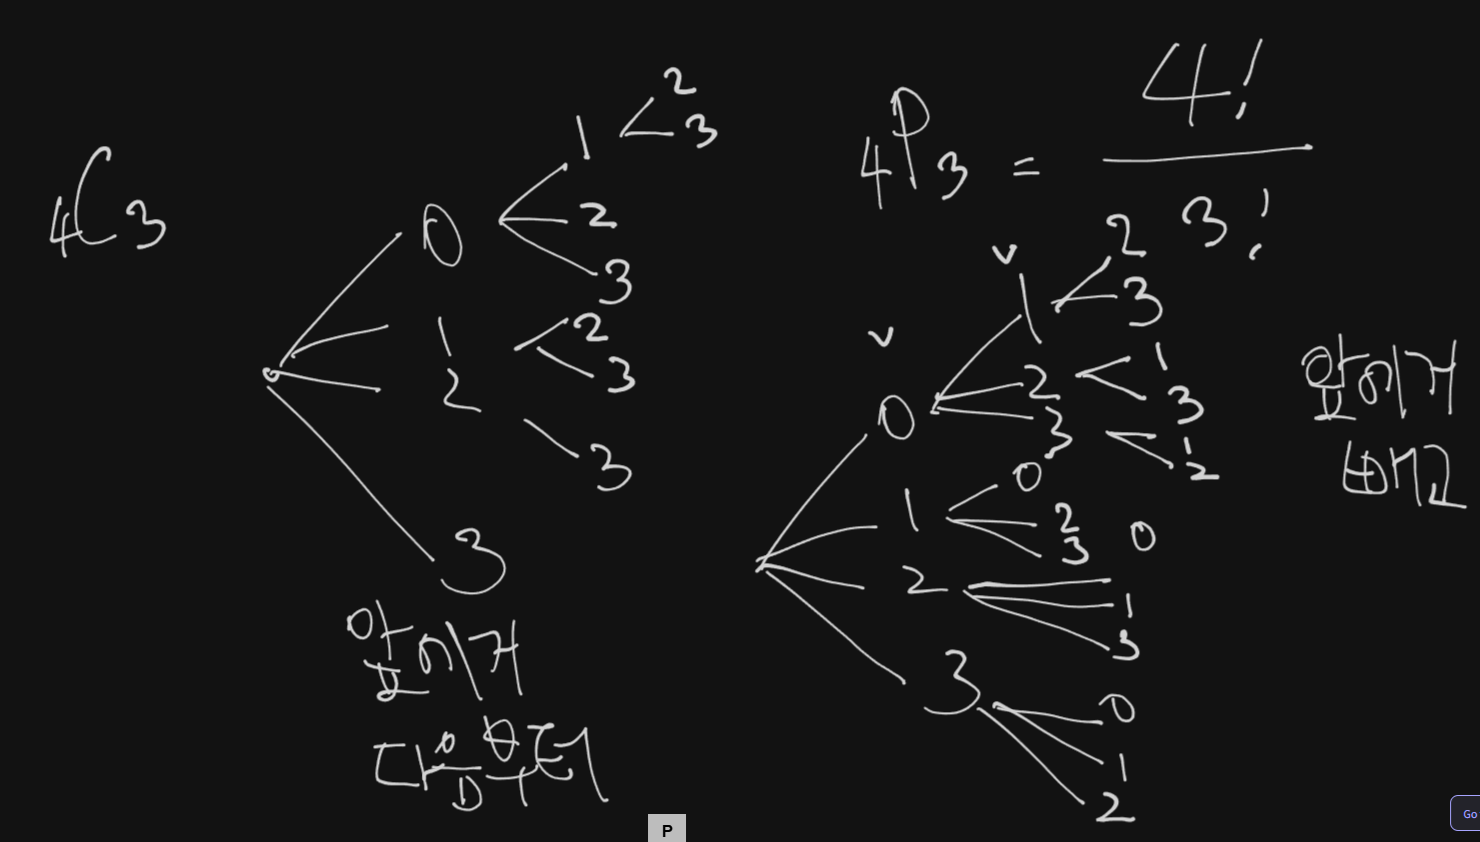 ₄C₃
0
1
2
3
2
3
1
2
3
2
3
3
앞에거
다음부터
₄P₃ = 4! / 3!
v
v
0
1
2
3
1
2
3
2
3
1
3
1
2
0
2
3
0
1
3
0
1
2
앞에거
빼고
P
Go